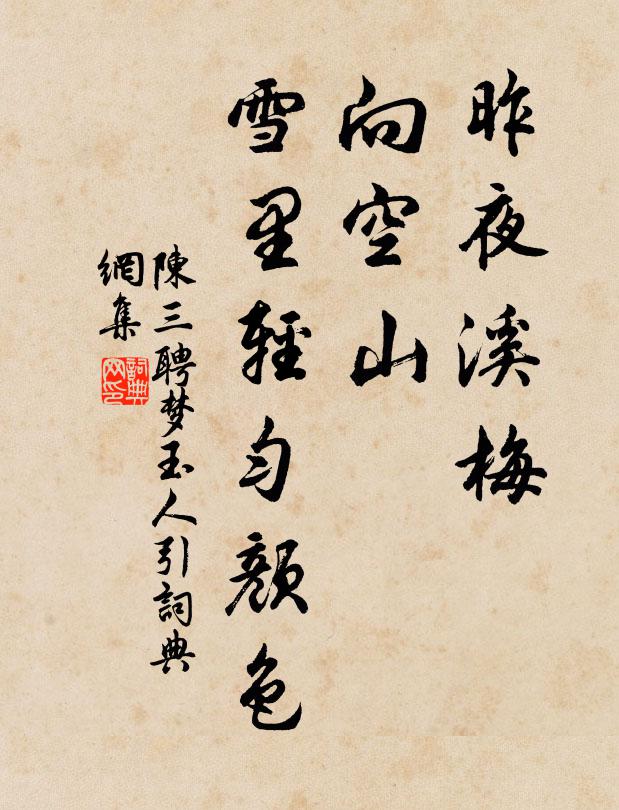 昨夜溪梅
向空山
雪里輕勻顏色
陳三聘梦玉人引詞典
網集
詞典
网印